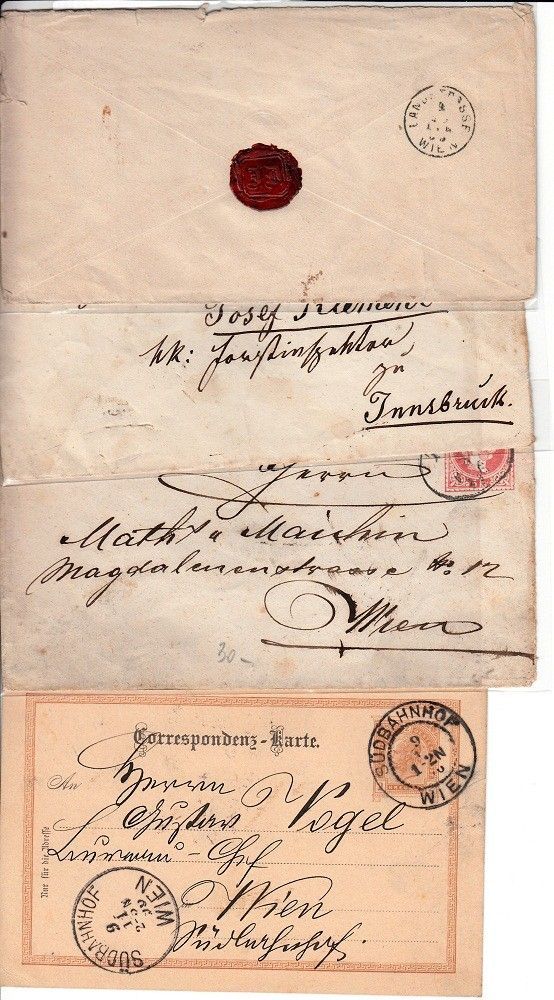 LANDSTRASSE
WIEN
Josef
kk: Forstinspektor
zu
Innsbruck.
Herrn
Magdalenenstrasse No 12
Wien
30-
SÜDBAHNHOF
9
1-2N
WIEN
Correspondenz-Karte.
An
Herrn
Gustav Vogel
Bureau-Chef
Wien
Südbahnhof
Nur für die Adresse
SÜDBAHNHOF
WIEN
9
11